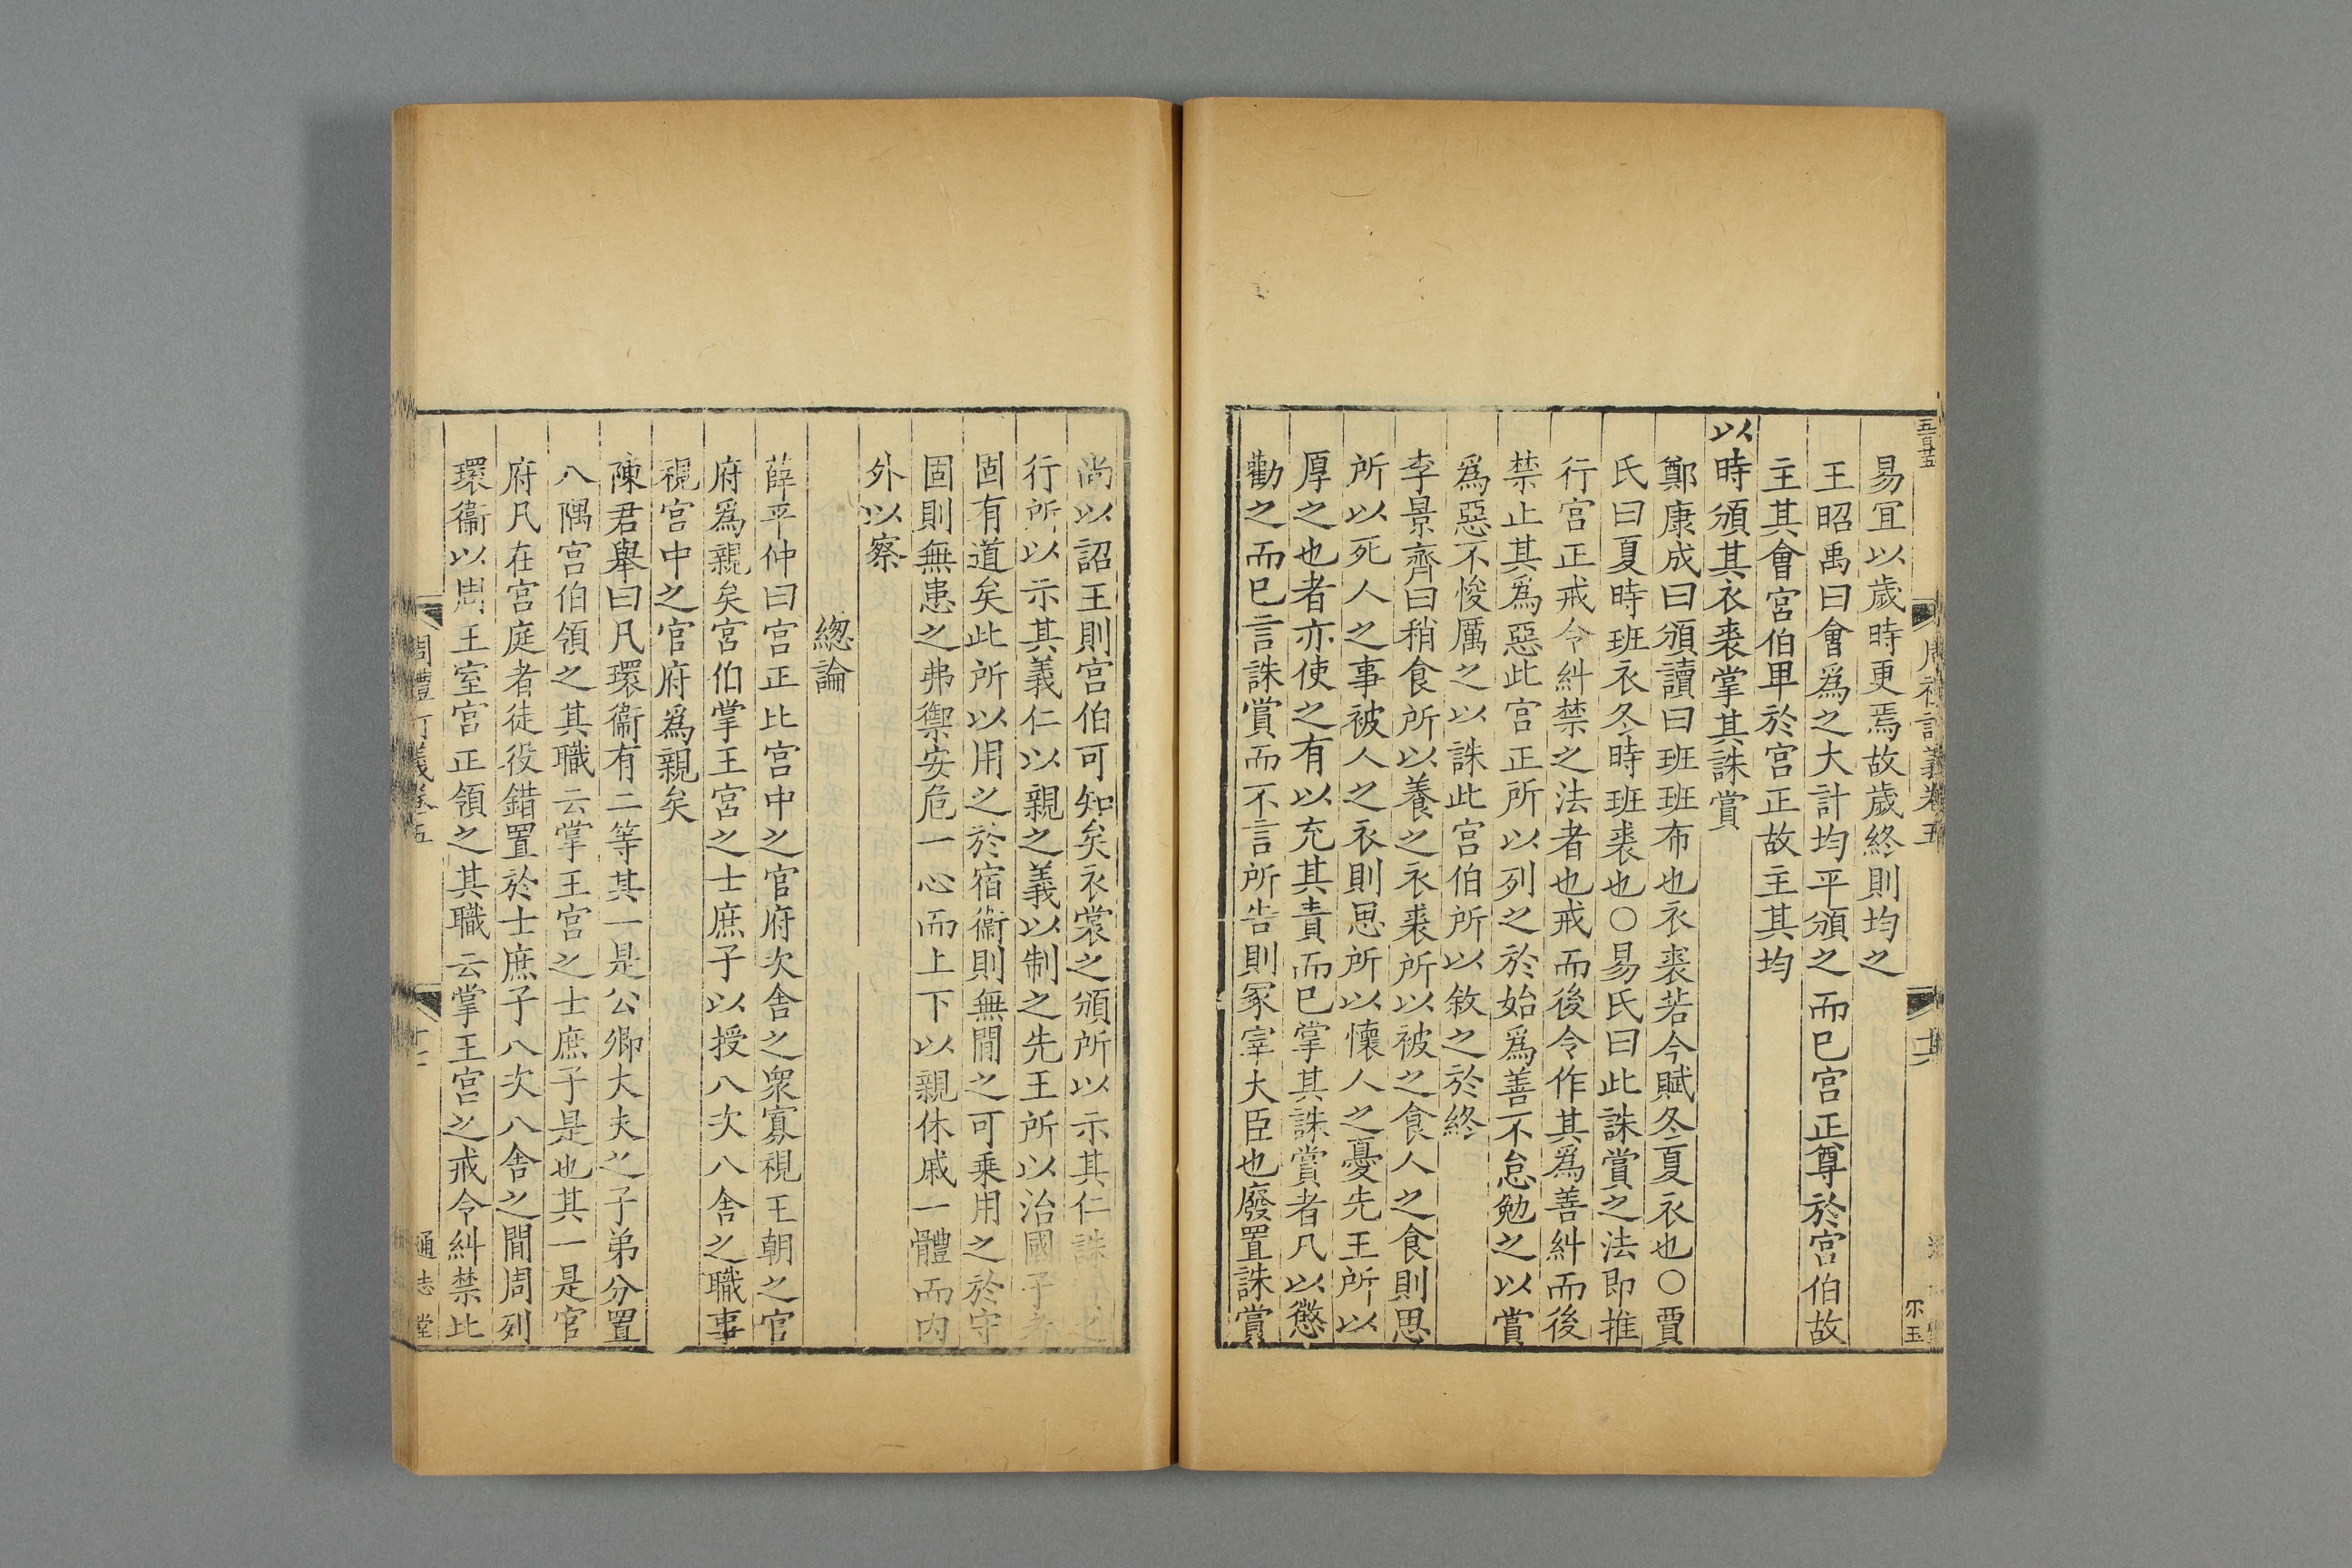 五百廿五
易宜以歲時更焉故歲終則均之
王昭禹曰會爲之大計均平頒之而已宮正尊於宮伯故
主其會宮伯卑於宮正故主其均
以時頒其衣裘掌其誅賞
鄭康成曰頒讀曰班班布也衣裘若今賦冬夏衣也○賈
氏曰夏時班衣冬時班裘也○易氏曰此誅賞之法即推
行宮正戒令糾禁之法者也戒而後令作其爲善糾而後
禁止其爲惡此宮正所以列之於始爲善不怠勉之以賞
爲惡不悛厲之以誅此宮伯所以敘之於終
李景齊曰稍食所以養之衣裘所以被之食人之食則思
所以死人之事被人之衣則思所以懷人之憂先王所以
厚之也者亦使之有以充其責而已掌其誅賞者凡以懲
勸之而已言誅賞而不言所告則冢宰大臣也廢置誅賞
尚以詔王則宮伯可知矣衣裳之頒所以示其仁誅賞之
行所以示其義仁以親之義以制之先王所以治國子者
固有道矣此所以用之於宿衞則無間之可乗用之於守
固則無患之弗禦安危一心而上下以親休戚一體而内
外以察
緫論
薛平仲曰宮正比宮中之官府次舍之衆寡視王朝之官
府爲親矣宮伯掌王宮之士庶子以授八次八舍之職事
視宮中之官府爲親矣
陳君舉曰凡環衞有二等其一是公卿大夫之子弟分置
八隅宮伯領之其職云掌王宮之士庶子是也其一是官
府凡在宮庭者徒役錯置於士庶子八次八舍之間周列
環衞以周王室宮正領之其職云掌王宮之戒令糾禁此
周禮訂義卷五
通志堂